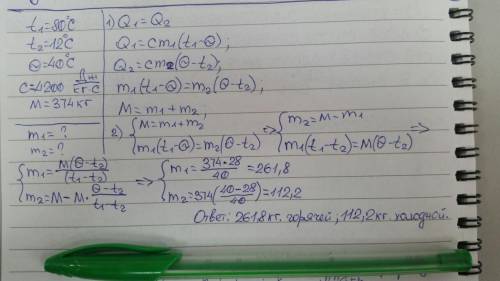 t₁=80°C
t₂=12°C
Θ=40°C
C=4200 Дж/кг·С
M=374кг
m₁=?
m₂=?
1) Q₁=Q₂
Q₁=cm₁(t₁-Θ);
Q₂=cm₂(Θ-t₂);
m₁(t₁-Θ)=m₂(Θ-t₂);
M=m₁+m₂
2) {M=m₁+m₂ => {m₂=M-m₁ =>
{m₁(t₁-Θ)=m₂(Θ-t₂) {m₁(t₁-t₂)=M(Θ-t₂)
{m₁=M(Θ-t₂)/(t₁-t₂) => {m₁=374·28/40=261,8
{m₂=M-M·Θ-t₂/t₁-t₂ {m₂=374(40-28/40)=112,2
Ответ: 261,8кг. горячей, 112,2кг. холодной.